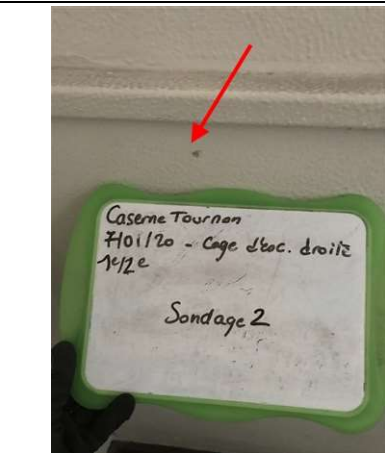 Caserne Tournon
7/01/20 - Cage d'esc. droite
1e/2e
Sondage 2